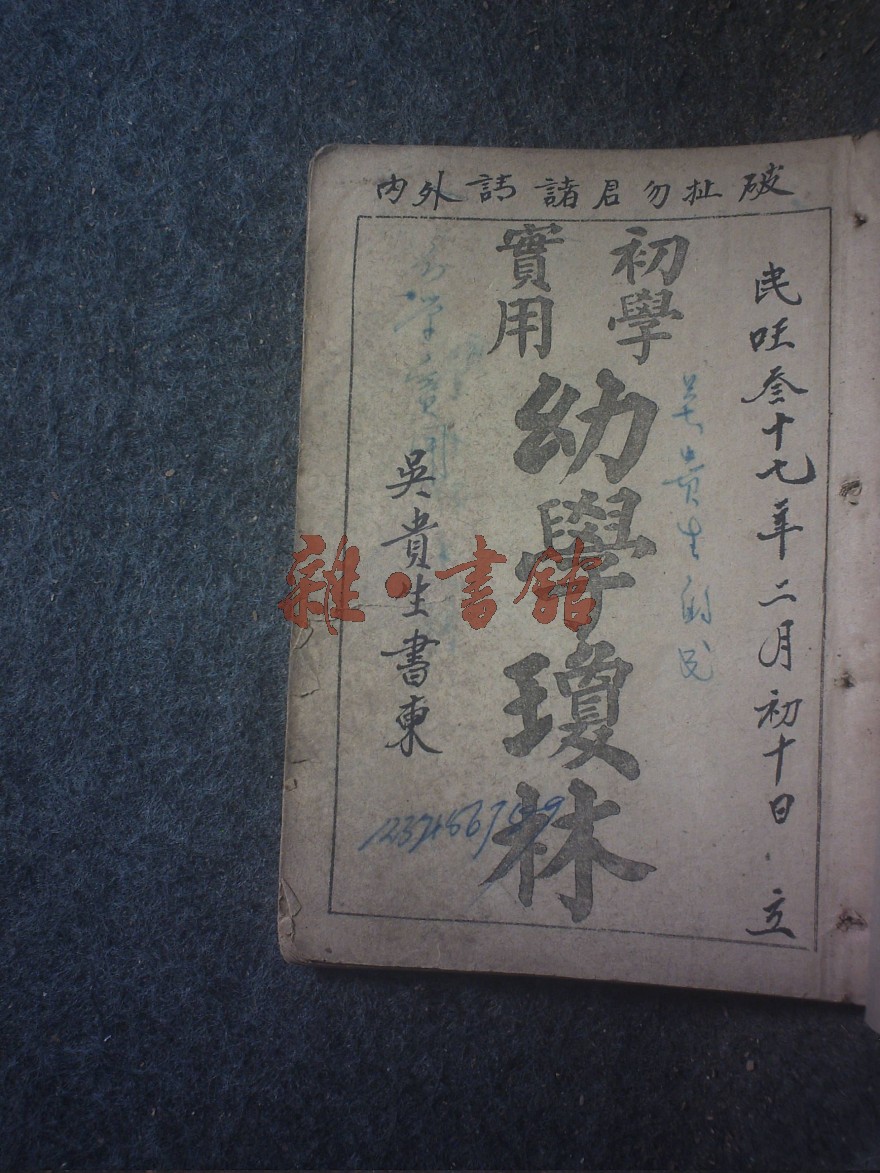 內外請諸君勿扯破
民旺叁十七年二月初十日 立
初學
實用
幼學瓊林
吳貴生書東
吴貴生
雜·書館